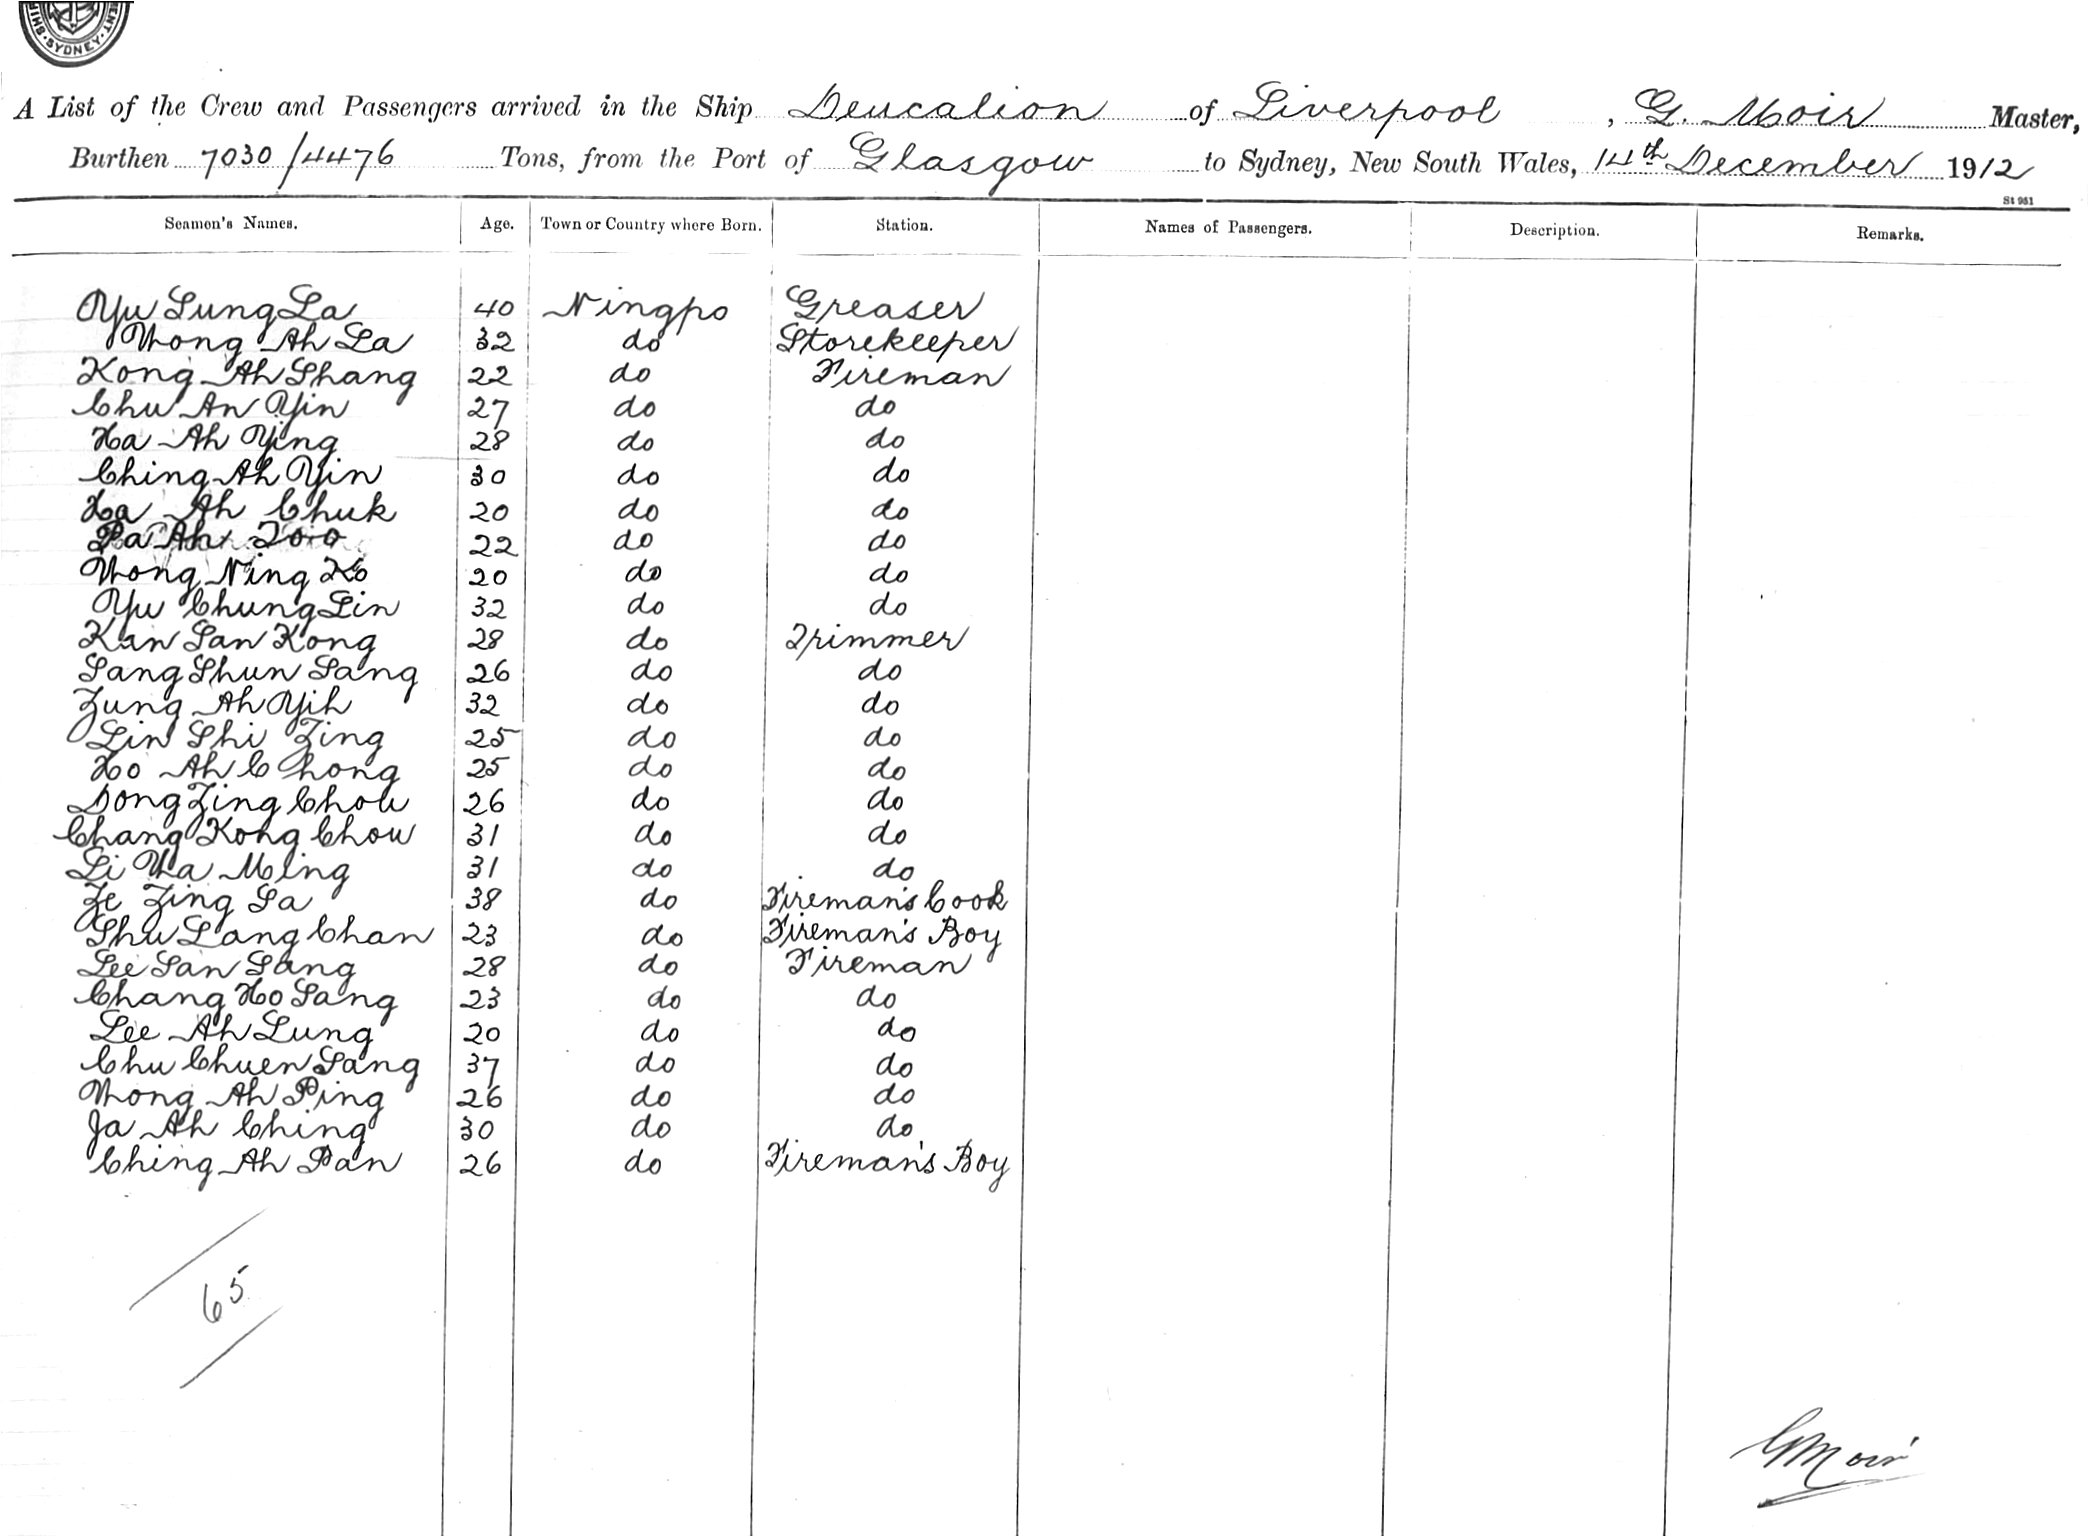 SYDNEY
A List of the Crew and Passengers arrived in the Ship Deucalion of Liverpool, G. Moir Master,
Burthen 7030/4476 Tons, from the Port of Glasgow to Sydney, New South Wales, 14th December 1912
St 951
Seamen's Names. Age. Town or Country where Born. Station. Names of Passengers. Description. Remarks.
Yu Sung La 40 Ningpo Greaser
Wong Ah La 32 do Storekeeper
Kong Ah Shang 22 do Fireman
Chu An Yin 27 do do
Ha Ah Ying 28 do do
Ching Ah Yin 30 do do
Ha Ah Chuk 20 do do
Pa Ah Zoo 22 do do
Wong Ning Ko 20 do do
Yu Chung Lin 32 do do
Kan San Kong 28 do Trimmer
Sang Shun Sang 26 do do
Zung Ah Yih 32 do do
Lin Shi Zing 25 do do
Ho Ah Chong 25 do do
Dong Zing Chow 26 do do
Chang Kong Chow 31 do do
Li Wa Ming 31 do do
Ze Zing Sa 38 do Fireman's Cook
Shu Lang Chan 23 do Fireman's Boy
Lee San Sang 28 do Fireman
Chang Ho Sang 23 do do
Lee Ah Lung 20 do do
Chu Chuen Sang 37 do do
Wong Ah Ping 26 do do
Ja Ah Ching 30 do do
Ching Ah Pan 26 do Fireman's Boy
65
G Moir